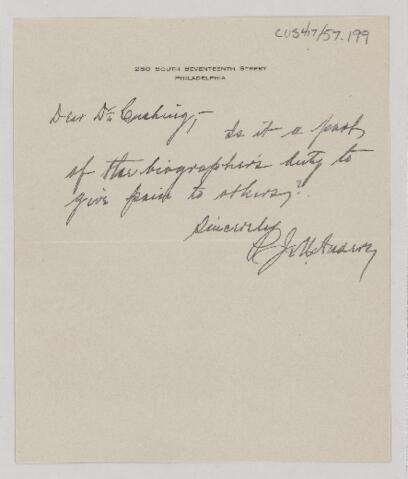 CUS417/57.199
250 SOUTH SEVENTEENTH STREET
PHILADELPHIA
Dear Dr. Cushing,
Is it a part
of the biographer's duty to
give pain to others?
Sincerely